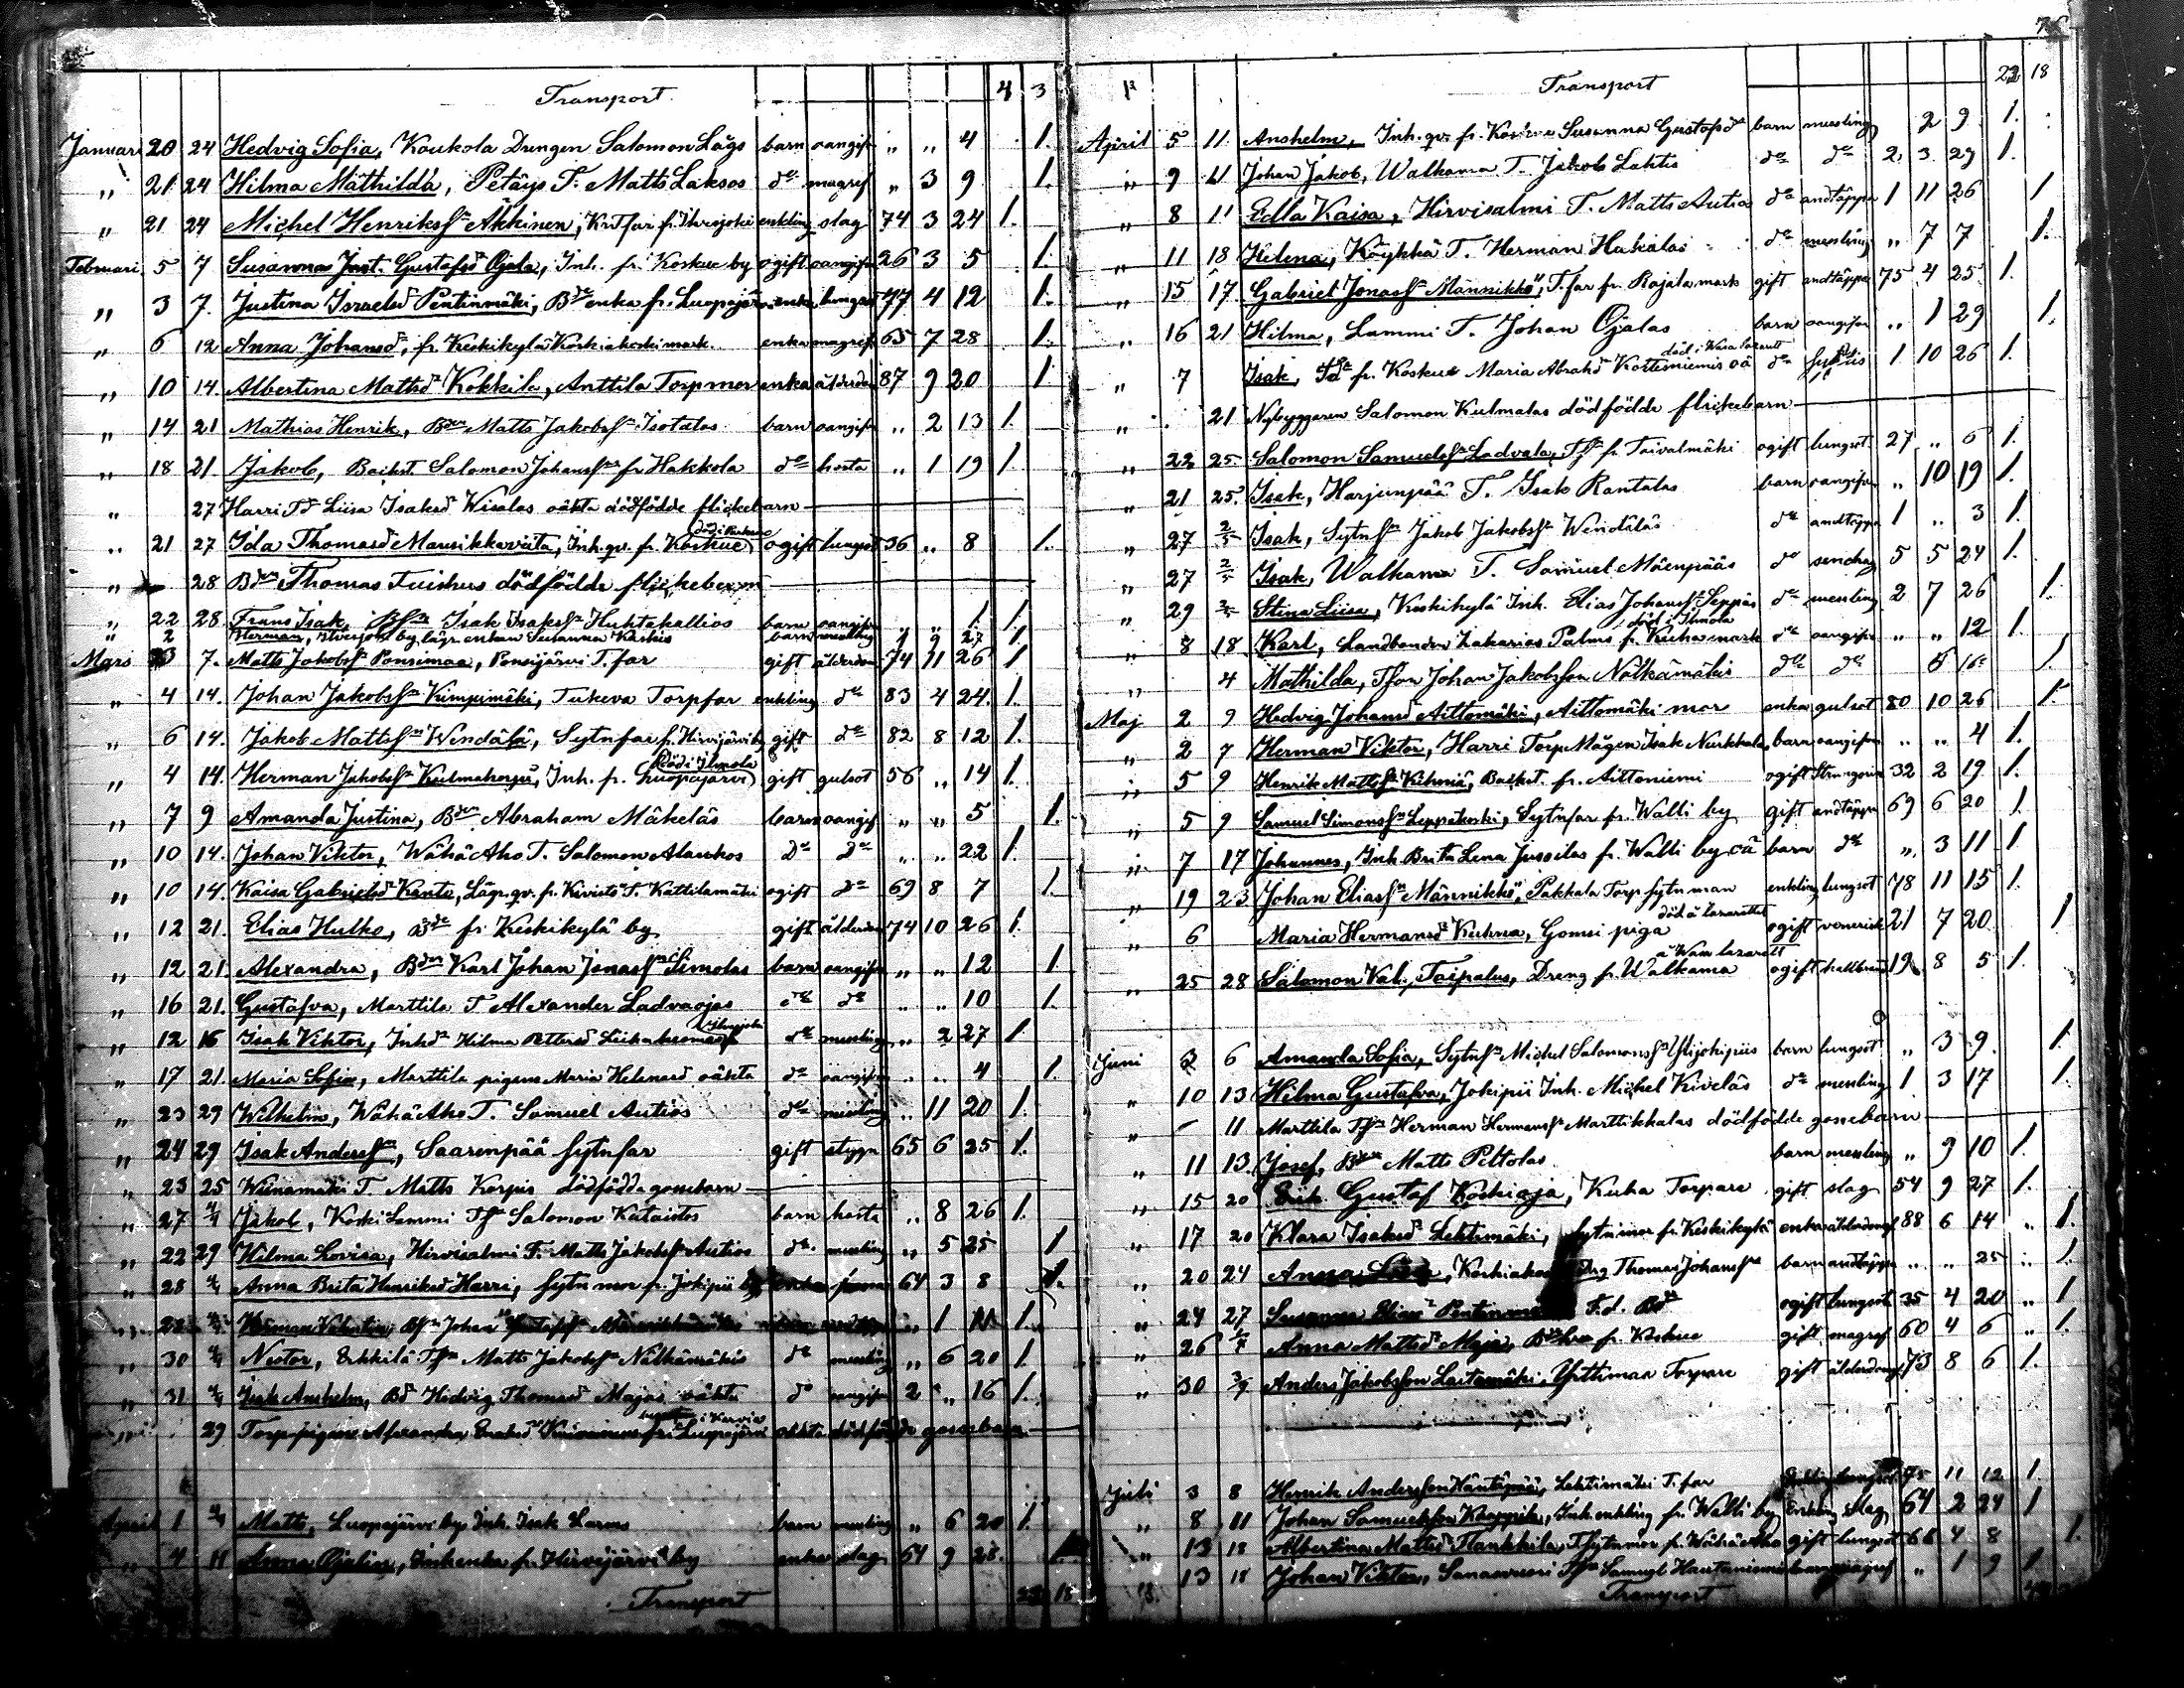 Transport 4 3
Januari 20 24 Hedvig Sofia, Koukola Drengen Salomon Lågs barn oangifv „ „ 4 1.
„ 21 24 Hilma Mathilda, Petäys T. Matts Laksos do magref „ 3 9 1.
„ 21 24 Michel Henrikss Äkkinen, enkling slag 74 3 24 1.
Februari 5 7 Susanna Just. Gustafsd Ojala, Inh. fr. Koskue by ogift oangifv 26 3 5 1.
„ 3 7. Justina Israelsd Pentinmäki, Bde enka fr. Luopajärvi enka lungsot 77 4 12 1.
„ 6 12 Anna Johansd, fr. Keskikylä Koskiakoski mark. enka magref 65 7 28 1.
„ 10 14. Albertina Mattsd Kokkila, Anttila Torpmor enka ålderdom 87 9 20 1
„ 14 21 Mathias Henrik, Bden Matts Jakobss Isotalos barn oangifv „ 2 13 1.
„ 18 21. Jakob, Backst. Salomon Johanss fr Hakkola do hosta „ 1 19 1.
„ 27 Harri Td Liisa Isaksd Wisalas oäkta dödfödde flickebarn
död i Koskue
„ 21 27 Ida Thomasd Mansikkaviita, Inh.qv. fr. Koskue, ogift lungsot 36 „ 8 1.
„ 28 Bden Thomas Tuiskus dödfödde flickebarn
„ 22 28. Frans Isak, Isak Isakss Huhtakallios barn oangifven „ „ 1. 1.
„ 2 Herman, by lägr. enkan Susanna barn messling 1 9 27 1.
Mars 3 7. Matts Jakobss Ponsimaa, Ponsijärvi T. far gift ålderdom 74 11 26 1
„ 4 14. Johan Jakobss Kimpimäki, Tukeva Torpfar enkling do 83 4 24. 1.
„ 6 14. Jakob Mattss Wendälä, Sytnfar fr. Hirvijärvi by gift do 82 8 12 1.
död i Ilmola
„ 4 14. Herman Jakobss Inh. fr. Luopajärvi gift gulsot 56 „ 14 1.
„ 7 9 Amanda Justina, Bden Abraham Mäkeläs barn oangif „ „ 5 1.
„ 10 14. Johan Viktor, Wähä Aho T. Salomon Alaukos do do „ „ 22 1.
„ 10 14. Kaisa Gabrielsd Kanto, Lägr.qv. fr. Kivistö T. Kattilamäki ogift do 69 8 7 1.
„ 12 21. Elias Hulko, Bde fr. Keskikylä by gift ålderdom 74 10 26 1.
„ 12 21. Alexandra, Bden Karl Johan Jonass Simolas barn oangifv „ „ 12 1
„ 16 21. Gustafva, Marttila T. Alexander Ladvaojas do do „ „ 10 1.
„ 12 16 Isak Viktor, Inhd Hilma Pettersd do messling „ 2 27 1.
„ 17 21. Maria Sofia, Marttila pigans Maria Helenasd oäkta do oangifv „ „ 4 1.
„ 23 29 Wilhelm, Wähä Aho T. Samuel Autios do messling „ 11 20 1.
„ 24 29 Isak Anderss, Saarenpää sytnfar gift stygn 65 6 25 1.
„ 23 25 Wiinamäki T. Matts Korpis dödfödda gossebarn
„ 27 4/4 Jakob, Koski Lammi Tfn Salomon Kataistos barn hosta „ 8 26 1.
„ 22 29 Hilma Lovisa, Hirvisalmi T. Matts Jakobss Autios do messling „ 5 25 1
„ 28 4/4 Anna Brita Henriksd Harri, Sytnmor fr. Jokipii by enka 64 3 8 1.
„ 1 1.
„ 30 4/4 Nestor, Erkkilä Tfn Matts Jakobss Nälkämäkis do messling „ 6 20 1.
„ 31 4/4 Isak Anshelm, Bd Hedvig Thomasd Majas oäkta do oangifv 2 „ 16 1.
„ 29 Torppigan Alexandra fr. Luopajärvi oäkta dödfödde gossebarn
April 1 4/4 Matts, Luopajärvi by Inh. Isak barn messling „ 6 20 1.
„ 4 11 Anna Ojalias, Inh.enka fr. Hirvijärvi by enka slag 64 9 28. 1.
Transport 22 18
76
Transport 22 18
April 5 11. Anshelm, Inh.qv. fr. Koskue Susanna Gustafsd barn messling 2 9 1.
„ 9 11 Johan Jakob, Walkama T. Jakob Lahtis do do 2. 3. 29 1.
„ 8 11 Edla Kaisa, Hirvisalmi T. Matts Autios do andtäppa 1 11 26 1
„ 11 18 Helena, Köykkä T. Herman Hakalas do messling „ 7 7 1.
„ 15 17. Gabriel Jonass Männikkö, T. far fr. Rajala mark gift andtäppa 75 4 25 1.
„ 16 21 Hilma, Lammi T. Johan Ojalas barn oangifven „ 1 29 1.
död i Wasa Lazarett
„ 7 Isak, fr. Koskue Maria Abrahd Kortesniemis oä do 1 10 26 1.
„ 21 Nybyggaren Salomon Kulmalas dödfödde flickebarn
„ 22 25 Salomon Samuelss Ladvala, Tfn fr. Taivalmäki ogift lungsot 27 „ 6 1.
„ 21 25. Isak, Harjunpää T. Isak Rantalas barn oangifven „ 10 19 1.
„ 27 2/5 Isak, Sytnfn Jakob Jakobss Wendäläs do andtäppa 1 „ 3 1.
„ 27 2/5 Isak, Walkama T. Samuel Mäenpääs do 5 5 24 1.
„ 29 2/5 Stina Liisa, Keskikylä Inh. Elias Johanss Seppäs do messling 2 7 26 1.
död i Ilmola
„ 8 18 Karl, Landbonden Zakarias Palms fr. Kuha mark do oangifven „ „ 12 1.
„ 4 Mathilda, Tfon Johan Jakobsson Nälkämäkis do do 1.
Maj 2 9 Hedvig Johansd Aittomäki, Aittomäki mor enka gulsot 80 10 26 1.
„ 2 7 Herman Viktor, Harri Torp Mågen Isak Nurkkala barn oangifven „ „ 4 1.
„ 5 9 Henrik Mattss Kihniä, Backst. fr. Aittoniemi ogift 32 2 19 1.
„ 5 9 Samuel Simonss Leppäkoski, Sytnfar fr. Walli by gift andtäppa 69 6 20 1.
„ 7 17 Johannes, Inh. Brita Lena Jussilas fr. Walli by oä barn do „ 3 11 1
„ 19 23 Johan Eliass Männikkö, Pakkala Torp sytnman enkling lungsot 78 11 15 1.
död å Lazarettet
„ 6 Maria Hermansd Kuhna, Gomsi piga ogift venerisk 21 7 20 1
å Wasa lazarett
„ 25 28 Salomon Taipalus, Dreng fr. Walkama ogift kallbrand 19 8 5 1.
Juni 3 6 Amanda Sofia, Sytnfn Michel Salomonss Ylijokipiis barn lungsot „ 3 9. 1.
„ 10 13 Hilma Gustafva, Jokipii Inh. Michel Kiveläs do messling 1 3 17 1.
„ 11 Marttila Tfn Herman Hermanss Marttikkalas dödfödde gossebarn
„ 11 13. Josef, Bden Matts Peltolas barn messling „ 9 10 1.
„ 15 20 Erik Gustaf Koskiaja, Kuha Torpare gift slag 54 9 27 1.
„ 17 20 Klara Isaksd Lehtimäki, Sytnmor fr. Keskikylä enka ålderdomsv 88 6 14 „ 1.
„ 20 24 Anna Thomas Johanss barn andtäppa „ „ 25 „ 1.
„ 24 27 Susanna Eliasd ogift lungsot 35 4 20 „ 1
„ 26 Anna Mattsd Maja, fr. Koskue gift magref 60 4 6 „ 1.
„ 30 Anders Jakobsson Lautamäki, Yttimaa Torpare gift ålderdomsv 73 8 6 1.
Juli 3 8 Henrik Andersson Häntäpää, Lehtimäki T. far lungsot 75 11 12 1.
„ 8 11 Johan Samuelsson Inh.enkling fr. Walli by Enkling slag 64 2 24 1
„ 13 18 Albertina Mattsd Sytnmor fr. Wähä Aho gift lungsot 66 4 8 1.
„ 13 18 Johan Viktor, Sanasvuori Tfn Samuel Hautaniemis barn magref „ 1 9 1
Transport